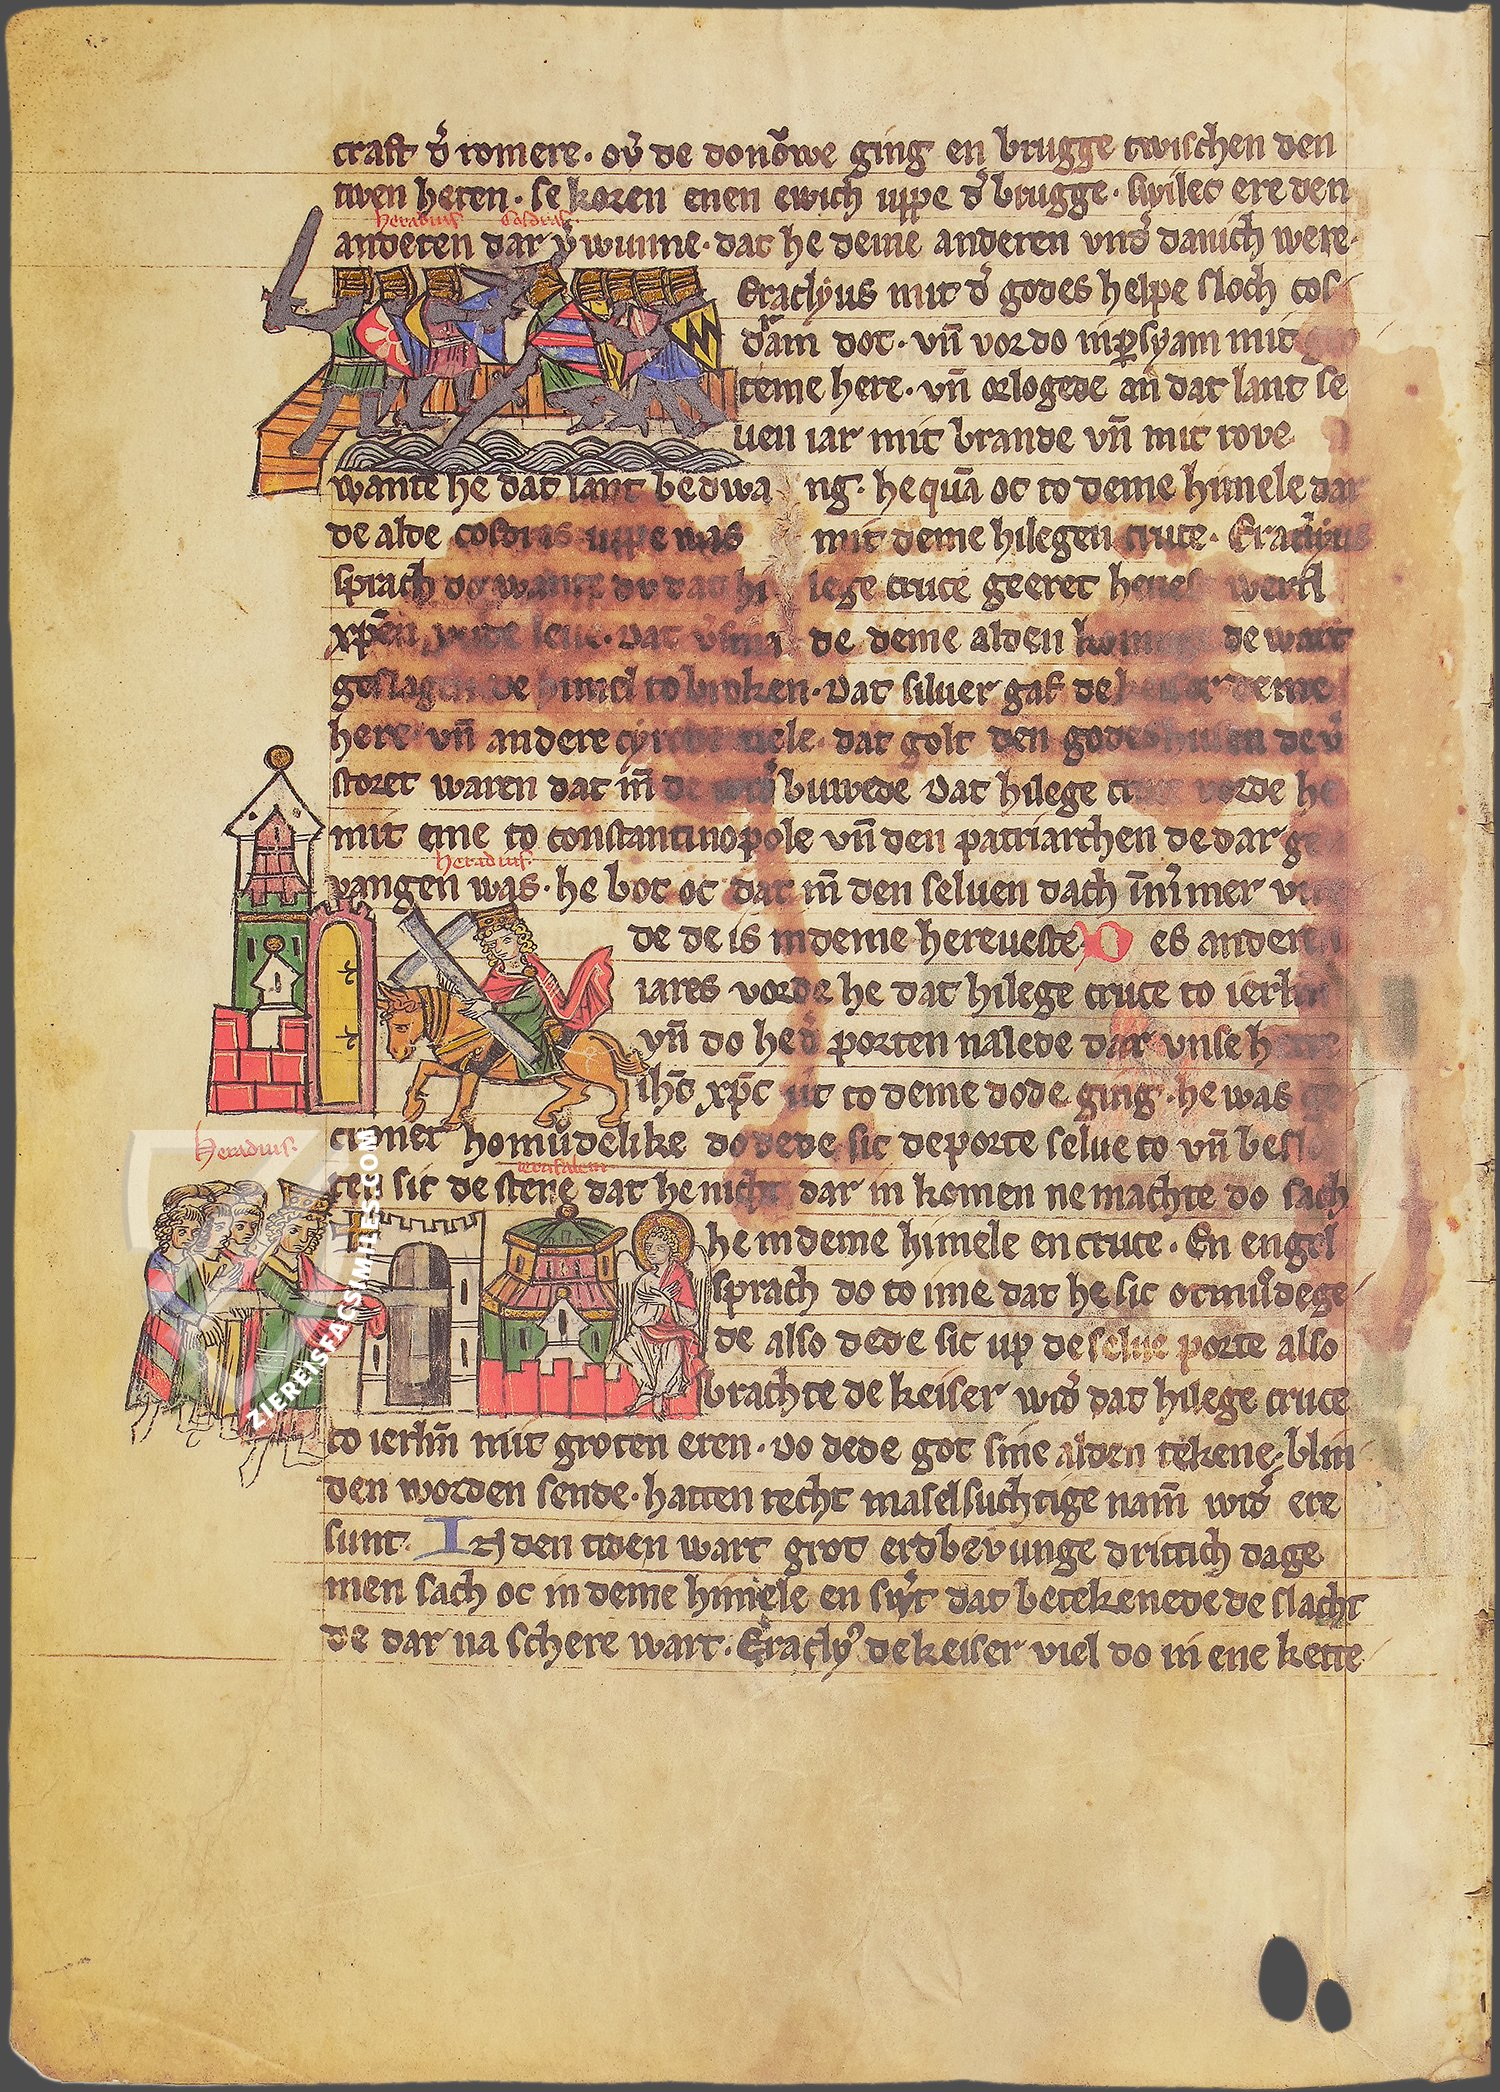 craft d̉ romere · ou̓ de donŏwe ging en brugge twischen den
twen heren · se koren enen ewich uppe d̉ brugge · swilec ere den
heraclius cosdras ·
anderen dar v̓wunne · dat he deme anderen vnd̓ danich were ·
Eraclyus mit d̓ godes helpe sloch cos
dram dot · vn̄ vor do in ꝑsyam mit
teme here · vn̄ orlogede an̄ dat lant se
uen iar mit brande vn̄ mit rove
wante he dat lant bedwa ng · he quā oc to deme himele dar
de alde cosdras uppe was mit deme hilegen cruce · Eraclyus
sprach do wante du dat hi lege cruce geeret heuest
xp̄en de deme alden de wart
geslagen de himel to broken · Dat siluer gaf de keiser deme
here vn̄ andere dat golt den godeshusen de v̓
storet waren dat m̄ de buwede Dat hilege cruce vorde he
mit eme to constantinopole vn̄ den patriarchen de dar ge
heraclius ·
vangen was · he bot oc dat m̄ den seluen dach īm̓mer
de de is in deme hereueste D es anderen
iares vorde he dat hilege cruce to ierlm̄
vn̄ do he d̓ porten nalede dar vnse here
ih̄c xp̄c ut to deme dode ging · he was ge
Heraclius ·
cronet homůdelike do dede sic de porte selue to vn̄ beslo
ierusalem
ten sic de stene dat he nicht dar in komen ne machte do sach
he in deme himele en cruce · En engel
sprach do to ime dat he sic otmůdege
de also dede sic up de selue porte also
brachte de keiser wid̓ dat hilege cruce
to ierlm̄ mit groten eren · Do dede got sine alden tekene · blin
den worden sende · hatten recht maselsuchtige nam̄ wid̓ ere
sunt · IN den tiden wart grot erdbevunge drittich dage
men sach oc in deme himele en swert dat betekenede de slacht
de dar na schere wart · Eracly⁹ de keiser viel do in ene kette
ZIEREISFACSIMILES.COM